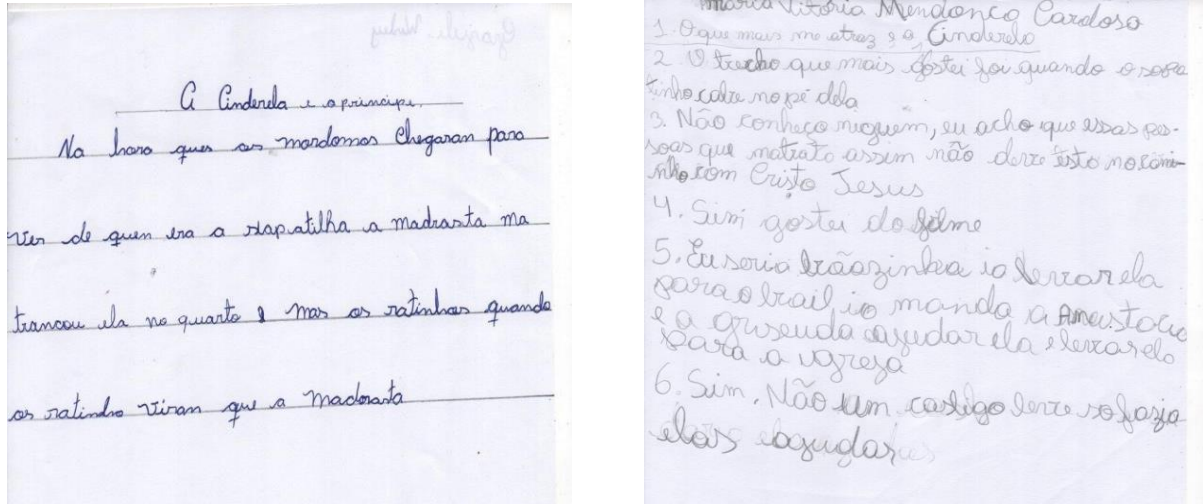 A Cinderela e o principe.
Na hora ques os mordomos chegaran para
ver de quen era a slapatilha a madrasta ma
trancou ela no quarto e mas os ratinhos quando
os ratindro viran que a madrasta
Maria Vitória Mendonco Cardoso
1. O que mais me atraz e a Cinderelo
2 O trecho que mais gostei foi quando o sopa
tinho cabe no pé dela
3. Não conheço niguém, eu acho que essas pes-
soas que matrato assim não deve esto no cami-
nho com Cristo Jesus
4. Sim gostei do filme
5. Eu seria io levar ela
para o io manda a
e a ajudar ela e levar elo
para a igreja
6. Sim, Não um castigo leve so fazia
elas ajudar